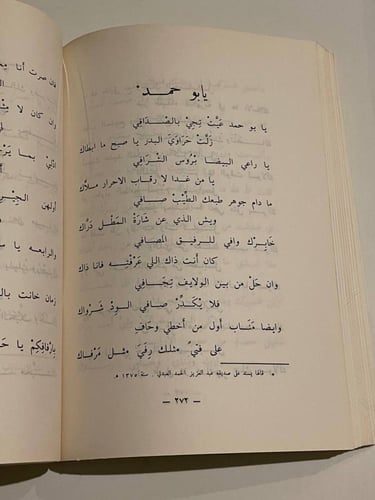 يابو حمد *
يا بو حمد عيّت تجي بالصدافي
زلّت حراوي البدر يا صبح ما ابطاك
يا راعي البيضا بروس الشرافي
يا من غدا لا رقاب الاحرار ملاّك
ما دام جوهر طبعك الطيّب صافي
ويش الذي عن شارة المطل درّاك
خابرك وافي للرفيق المصافي
كان أنت ذاك اللي عرفتيه فانا ذاك
وان حل من بين الولايف تجافي
فلا يكدّر صافي الود شرواك
وايضا مناب أول من أخطي وحاف
على فتيّ مثلك رفيّ مثل مرفاك
* قالها يسند على صديقه عبد العزيز الحمد العبدلي .. سنة ١٣٧٥ هـ
— ٢٧٢ —
فان صرت أنا
وان كان لا
بما
أولهن
والرابعه يا
زمان خانت
يا